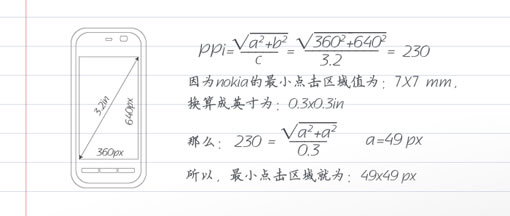 3.2in
640px
360px
ppi=√(a²+b²)/c=√(360²+640²)/3.2 = 230
因为nokia的最小点击区域值为：7X7 mm，
换算成英寸为：0.3x0.3in
那么：230 = √(a²+a²)/0.3 a=49 px
所以，最小点击区域就为：49x49 px